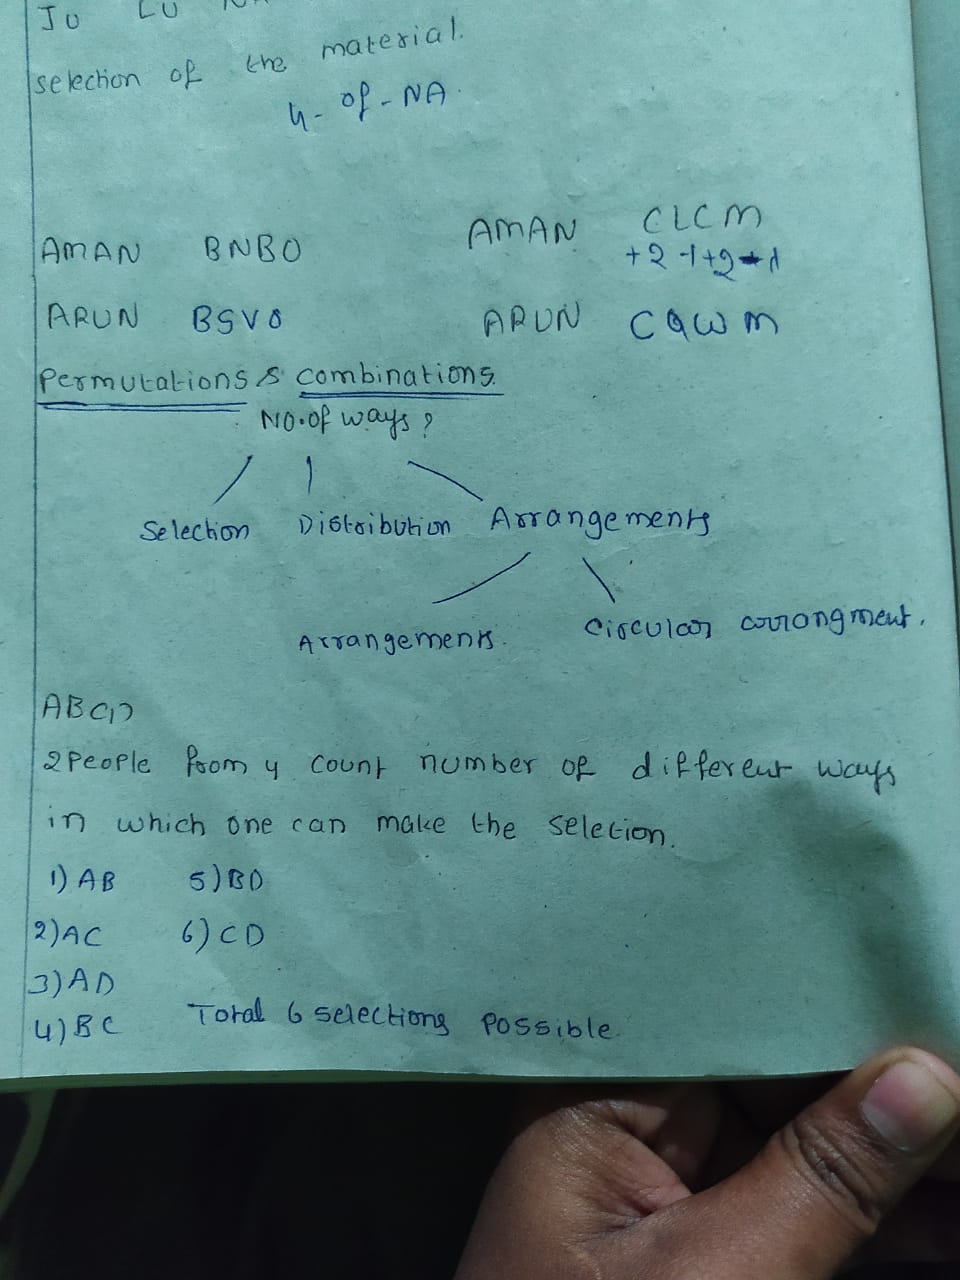 selection of the material.
4- of - NA.
AMAN BNBO AMAN CLCM
+2 -1 +2 -1
ARUN BSVO ARUN CQWM
Permutations & combinations.
No. of ways ?
Selection Distribution Arrangements
Arrangements. Circular arrangment.
ABCD
2 People from 4 count number of different ways
in which one can make the selection.
1) AB 5) BD
2) AC 6) CD
3) AD
4) BC Total 6 selections possible.